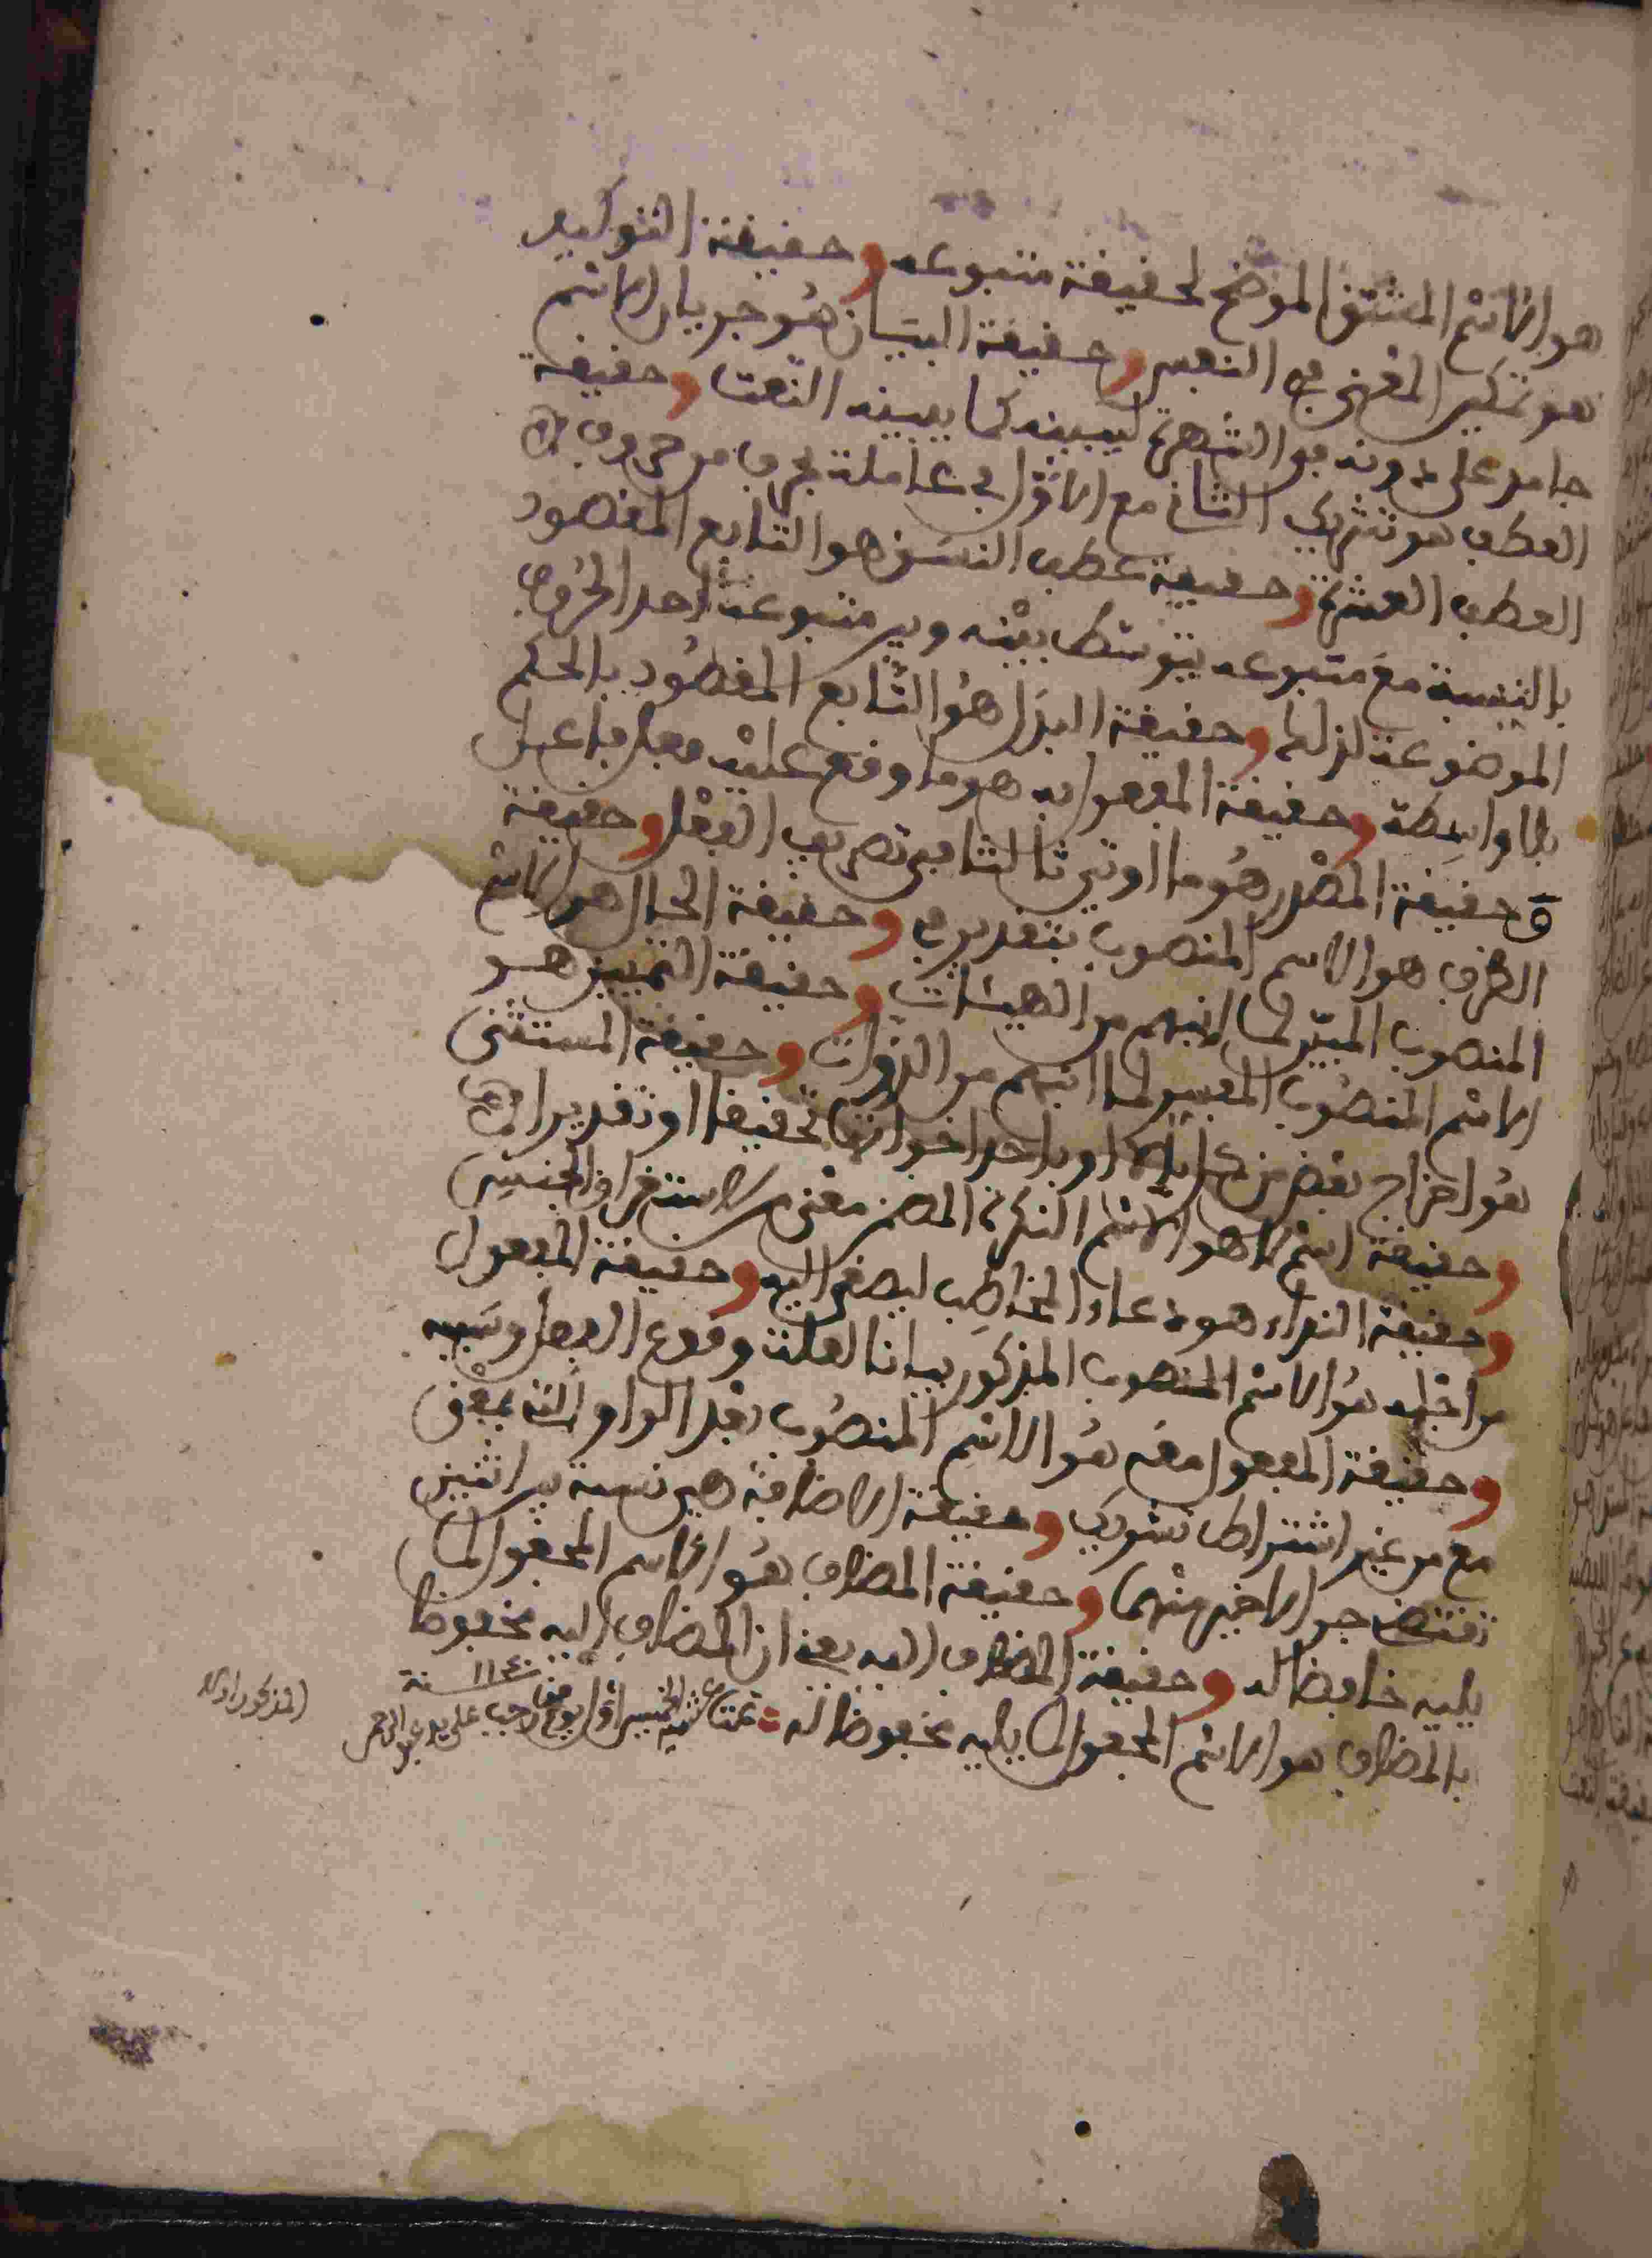 هو الاسْم المشتق الموضح لحقيقة متبوعه وحقيقة التوكيد
هو تمكين المعنى في النفس وحقيقة البيَان هُو جريان الاسْم
جامد على دونه في الشهرة ليبينه كما يبينه النّعت وحقيقة
العطف هو تشريك الثاني مع الاوّل في عامله بحرف من حروف
العطف العشرة وحقيقة عطف النسَق هو التابع المقصود
بالنسبة معَ متبوعه يتوسَّط بيْنه وبين متبوعه احد الحرُوف
الموضوعة لذلك وحقيقة البدَل هُو التَّابع المقصُود بالحكم
بلا واسِطة وحقيقة المفعول به هو ما وقع عليْه فعل فاعل
وحقيقة المصْدر هُو ما اوتي ثالثا في تصريف الفعْل وحقيقة
الظرف هو الاسم المنصوب بتقدير في وحقيقة الحال هو الاسْم
المنصوب المبيّن لما انبهم من الهيئات وحقيقة التمييز هو
الاسْم المنصُوب المفسر لما انبهم من الذوات وحقيقة المستثنى
هُو اخراج بعْض من كل بإلا او باحد اخواتها تحقيقا او تقديرا
وحقيقة اسْم لا هو الاسْم النكرة المضمن معْنى الاستغراق الجنسِي
وحقيقة النداء هو دعاء المخاطَب ليصغى اليه وحقيقة المفعول
من اجْله هُو الاسْم المنصوب المذكور بيانا لعلة وقوع الفعل وسَببه
وحقيقة المفعول معَه هُو الاسْم المنصُوب بعْد الواو التي بمعْنى
مع من غيْر اشتراط تشريك وحقيقة الاضافة هي نسبة بين اثنين
تقتضي جر الاخير منْهما وحقيقة المضاف هُو الاسم المجعُول لما
يليه خافضا له وحقيقة المضاف اليه يعني ان المضاف إليه مخفوظا
بالمضاف هو الاسْم المجعول لما يليه مخفوظا له تمت عشية الخميس اوّل يوم من رجب على يد عبد الرحمن
المذكور اولا
سنة ١١٤٠